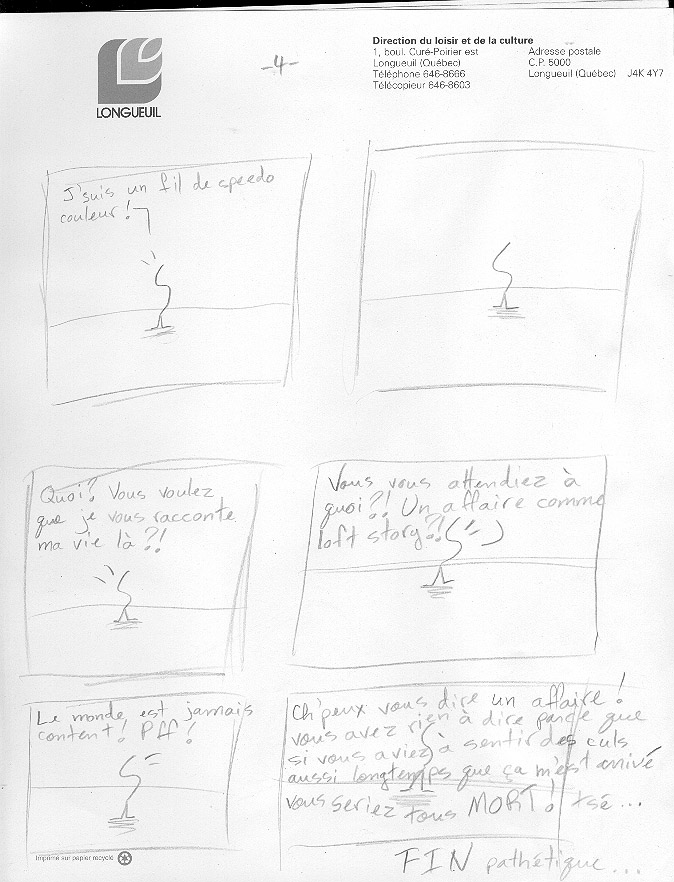 LONGUEUIL
-4-
Direction du loisir et de la culture
1, boul. Curé-Poirier est
Longueuil (Québec)
Téléphone 646-8666
Télécopieur 646-8603
Adresse postale
C.P. 5000
Longueuil (Québec) J4K 4Y7
J'suis un fil de speedo
couleur!
Quoi? Vous voulez
que je vous racconte
ma vie là?!
Vous vous attendiez à
quoi?! Un affaire comme
loft story?!
Le monde est jamais
content! Pff!
Ch'peux vous dire un affaire!
vous avez rien à dire parce que
si vous aviez à sentir des culs
aussi longtemps que ça m'est arrivé
vous seriez tous MORT! tsé...
FIN pathétique...
Imprimé sur papier recyclé